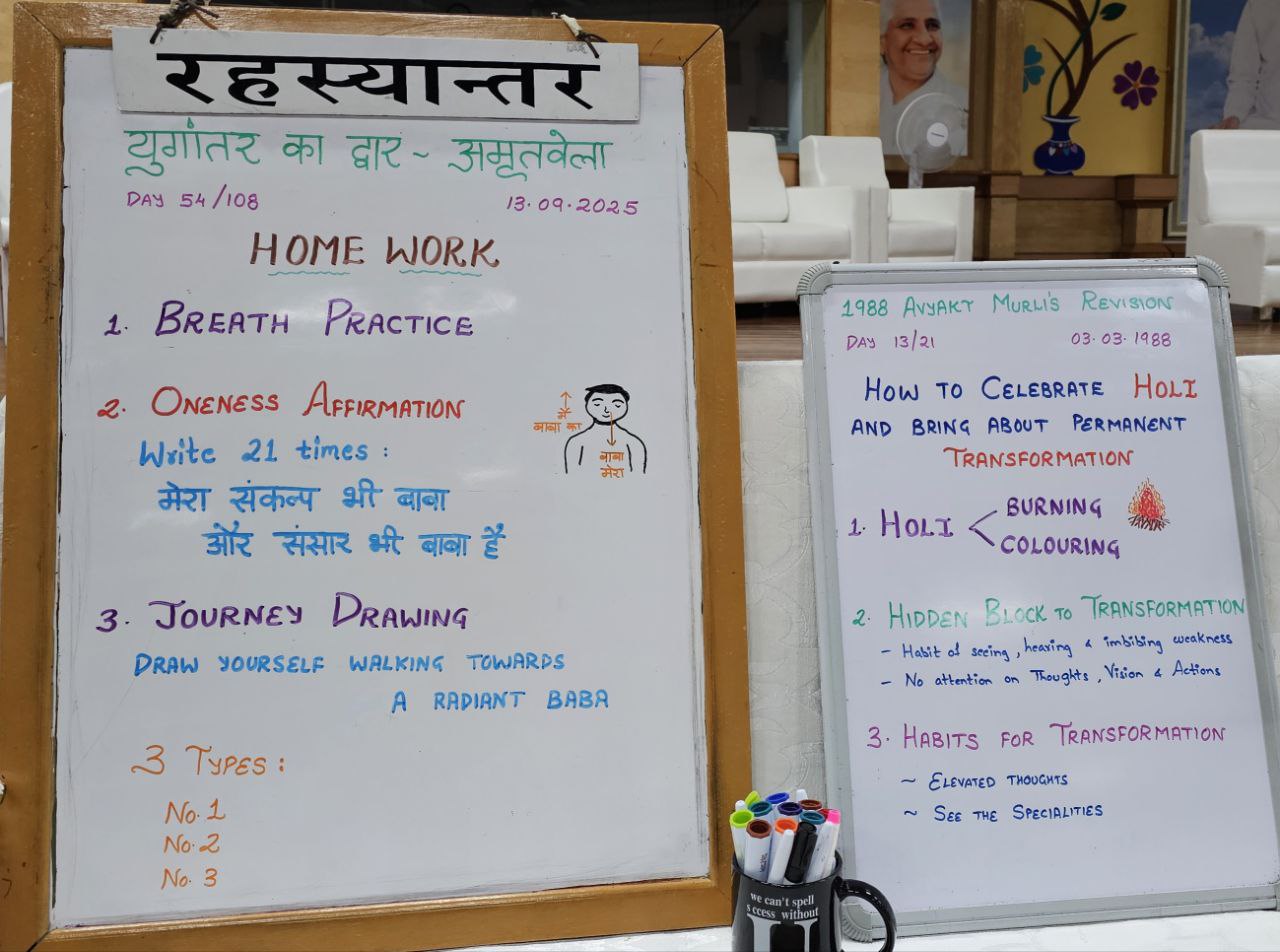 रहस्यान्तर
युगांतर का द्वार ~ अमृतवेला
DAY 54/108
13.09.2025
HOME WORK
1. BREATH PRACTICE
2. ONENESS AFFIRMATION
Write 21 times :
मेरा संकल्प भी बाबा
और संसार भी बाबा है
मैं
बाबा का
बाबा
मेरा
3. JOURNEY DRAWING
DRAW YOURSELF WALKING TOWARDS
A RADIANT BABA
3 TYPES :
No. 1
No. 2
No. 3
1988 AVYAKT MURLI'S REVISION
DAY 13/21
03.03.1988
HOW TO CELEBRATE HOLI
AND BRING ABOUT PERMANENT
TRANSFORMATION
1. HOLI
BURNING
COLOURING
2. HIDDEN BLOCK TO TRANSFORMATION
- Habit of seeing, hearing & imbibing weakness
- No attention on Thoughts, Vision & Actions
3. HABITS FOR TRANSFORMATION
~ ELEVATED THOUGHTS
~ SEE THE SPECIALITIES
we can't spell
s ccess without